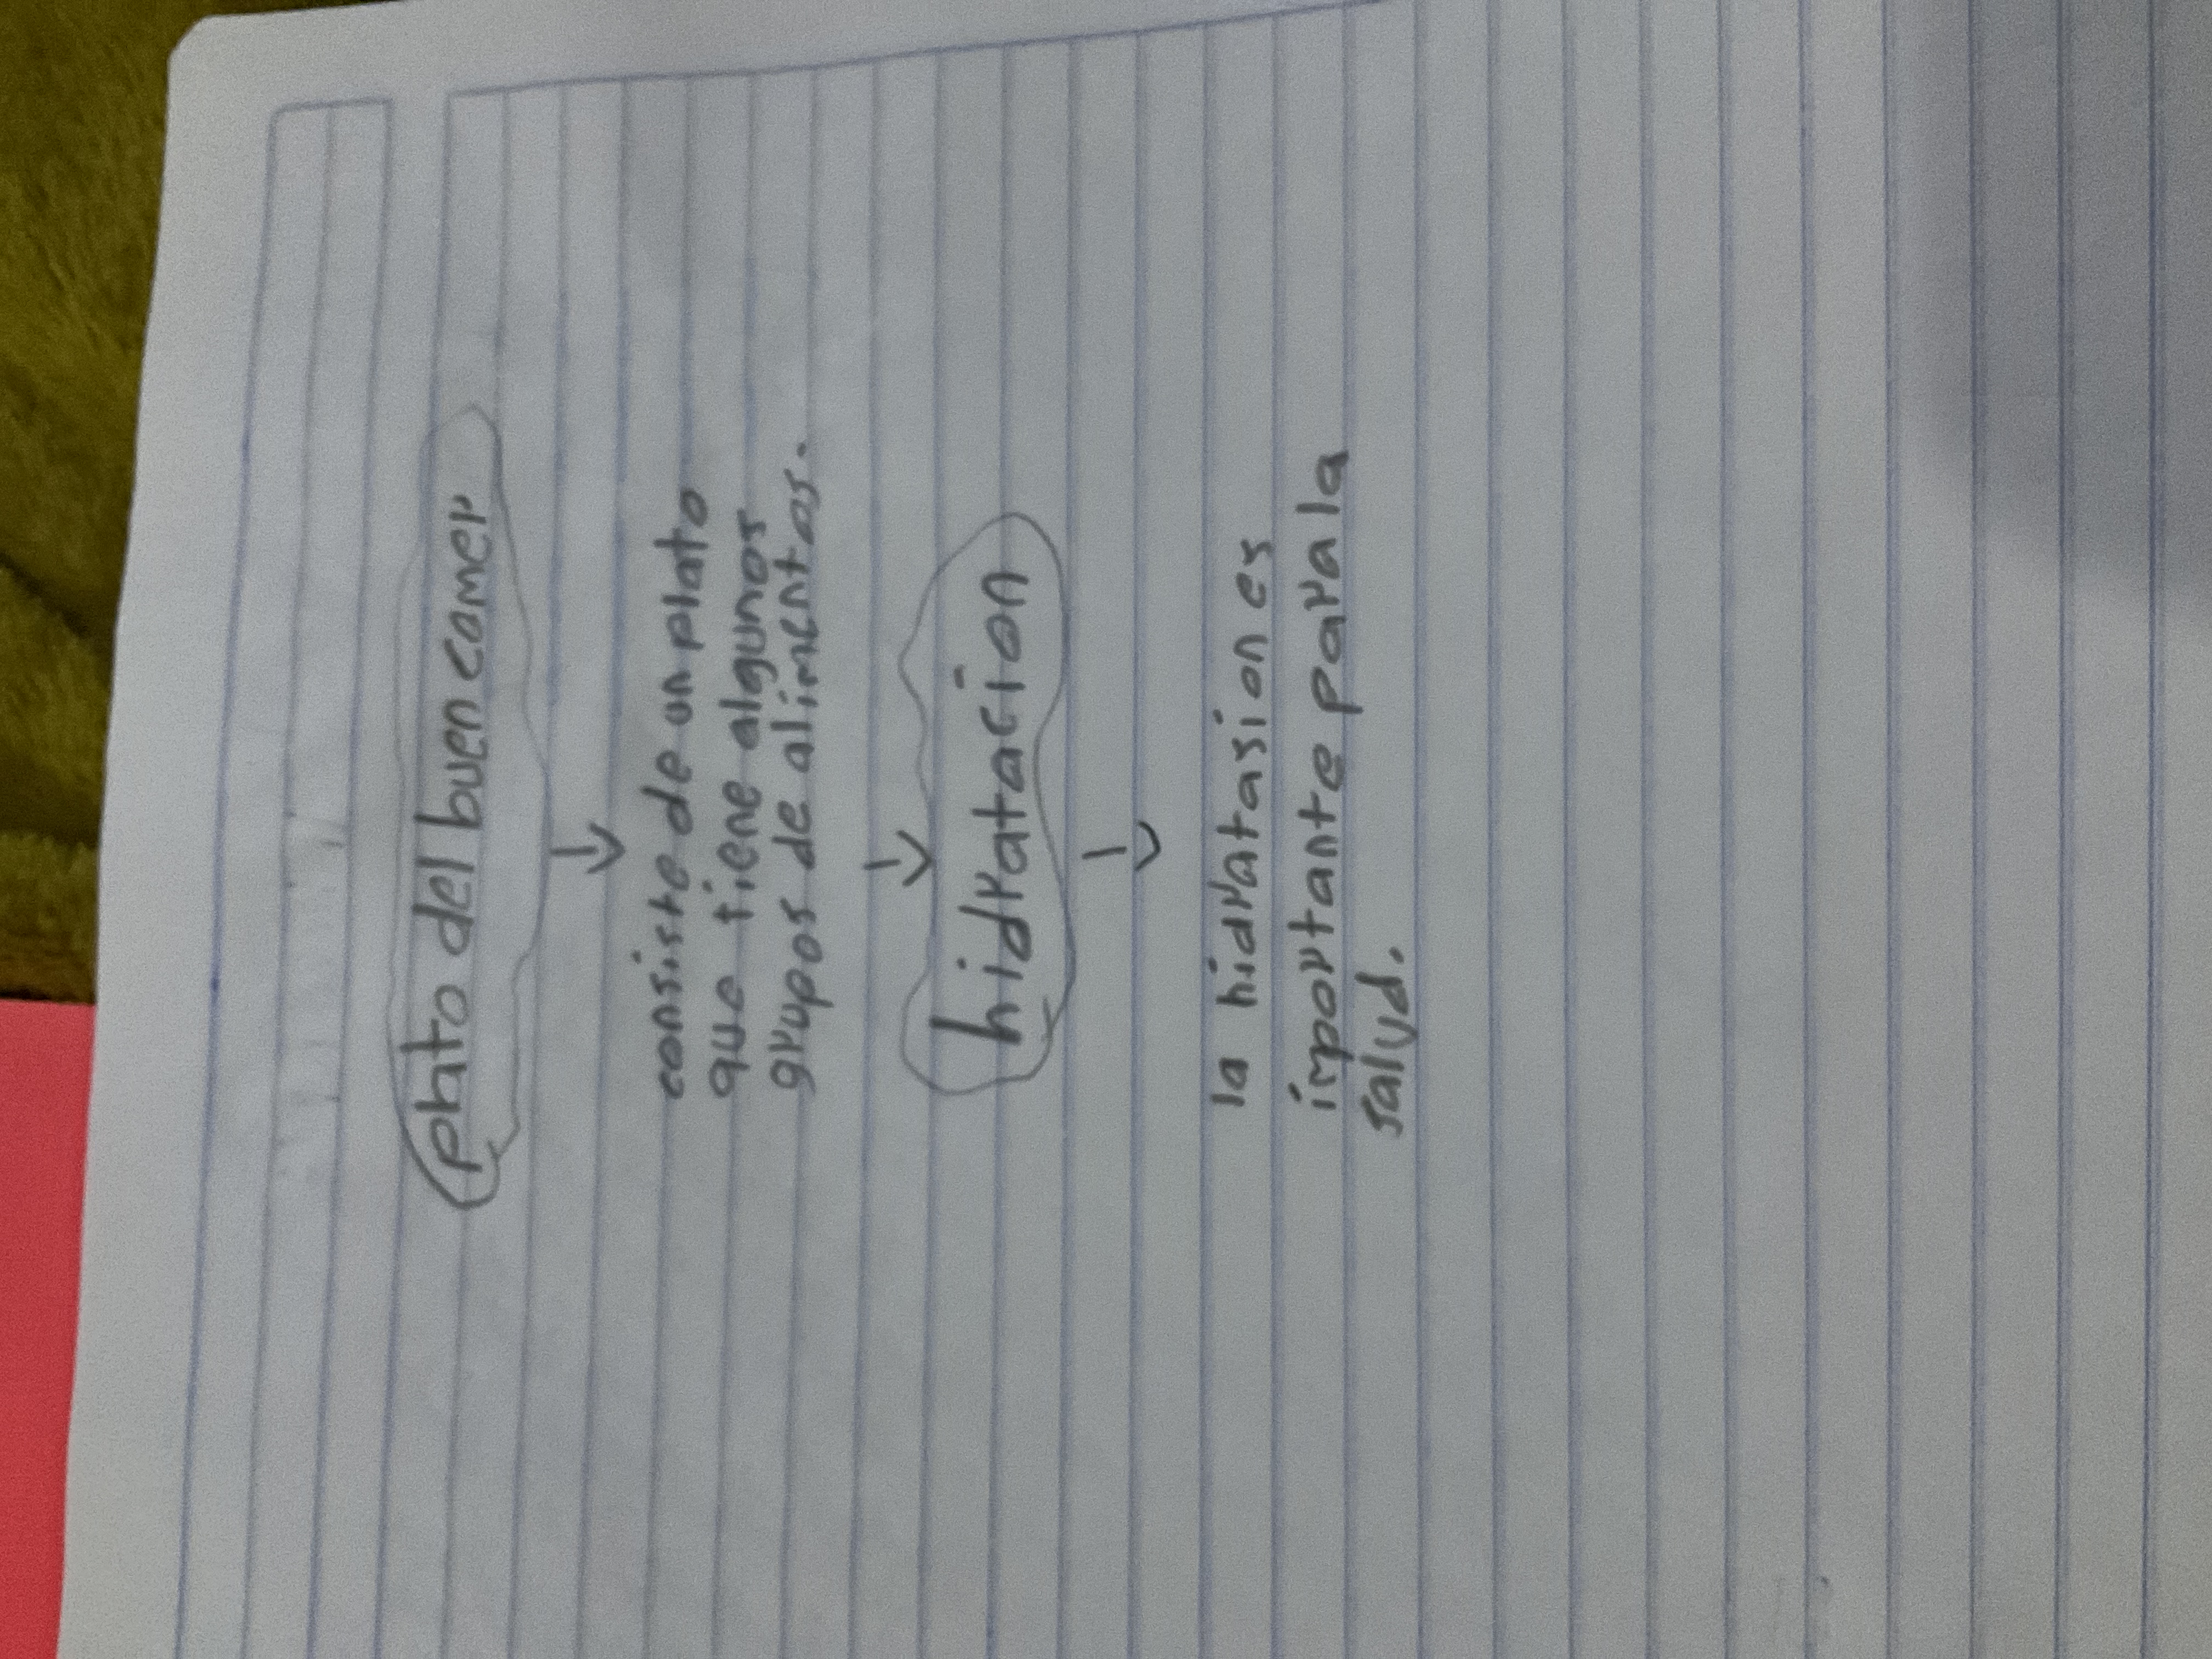 plato del buen comer
consiste de un plato
que tiene algunos
grupos de alimentos.
hidratacion
la hidratasion es
importante para la
salud.